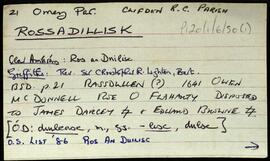 21 Omey Par. CLIFDEN R.C. PARISH
ROSSADILLISK
P120/1/6/50(1)
Clad Ambros: Ros an Duilisc
Griffiths: Rev Sir Christopher R. Lighton, Bart.
BSD. p21 RASSDULLEN (?) 1641 OWEN
MCDONNELL ROE O FLAHARTY DISPOSED
TO JAMES DARCEY & EDMUND BROWNE
[O.D: duileasc, n, gs. - lisc, dulse]
O.S. LIST 86 ROS AN DUILISC